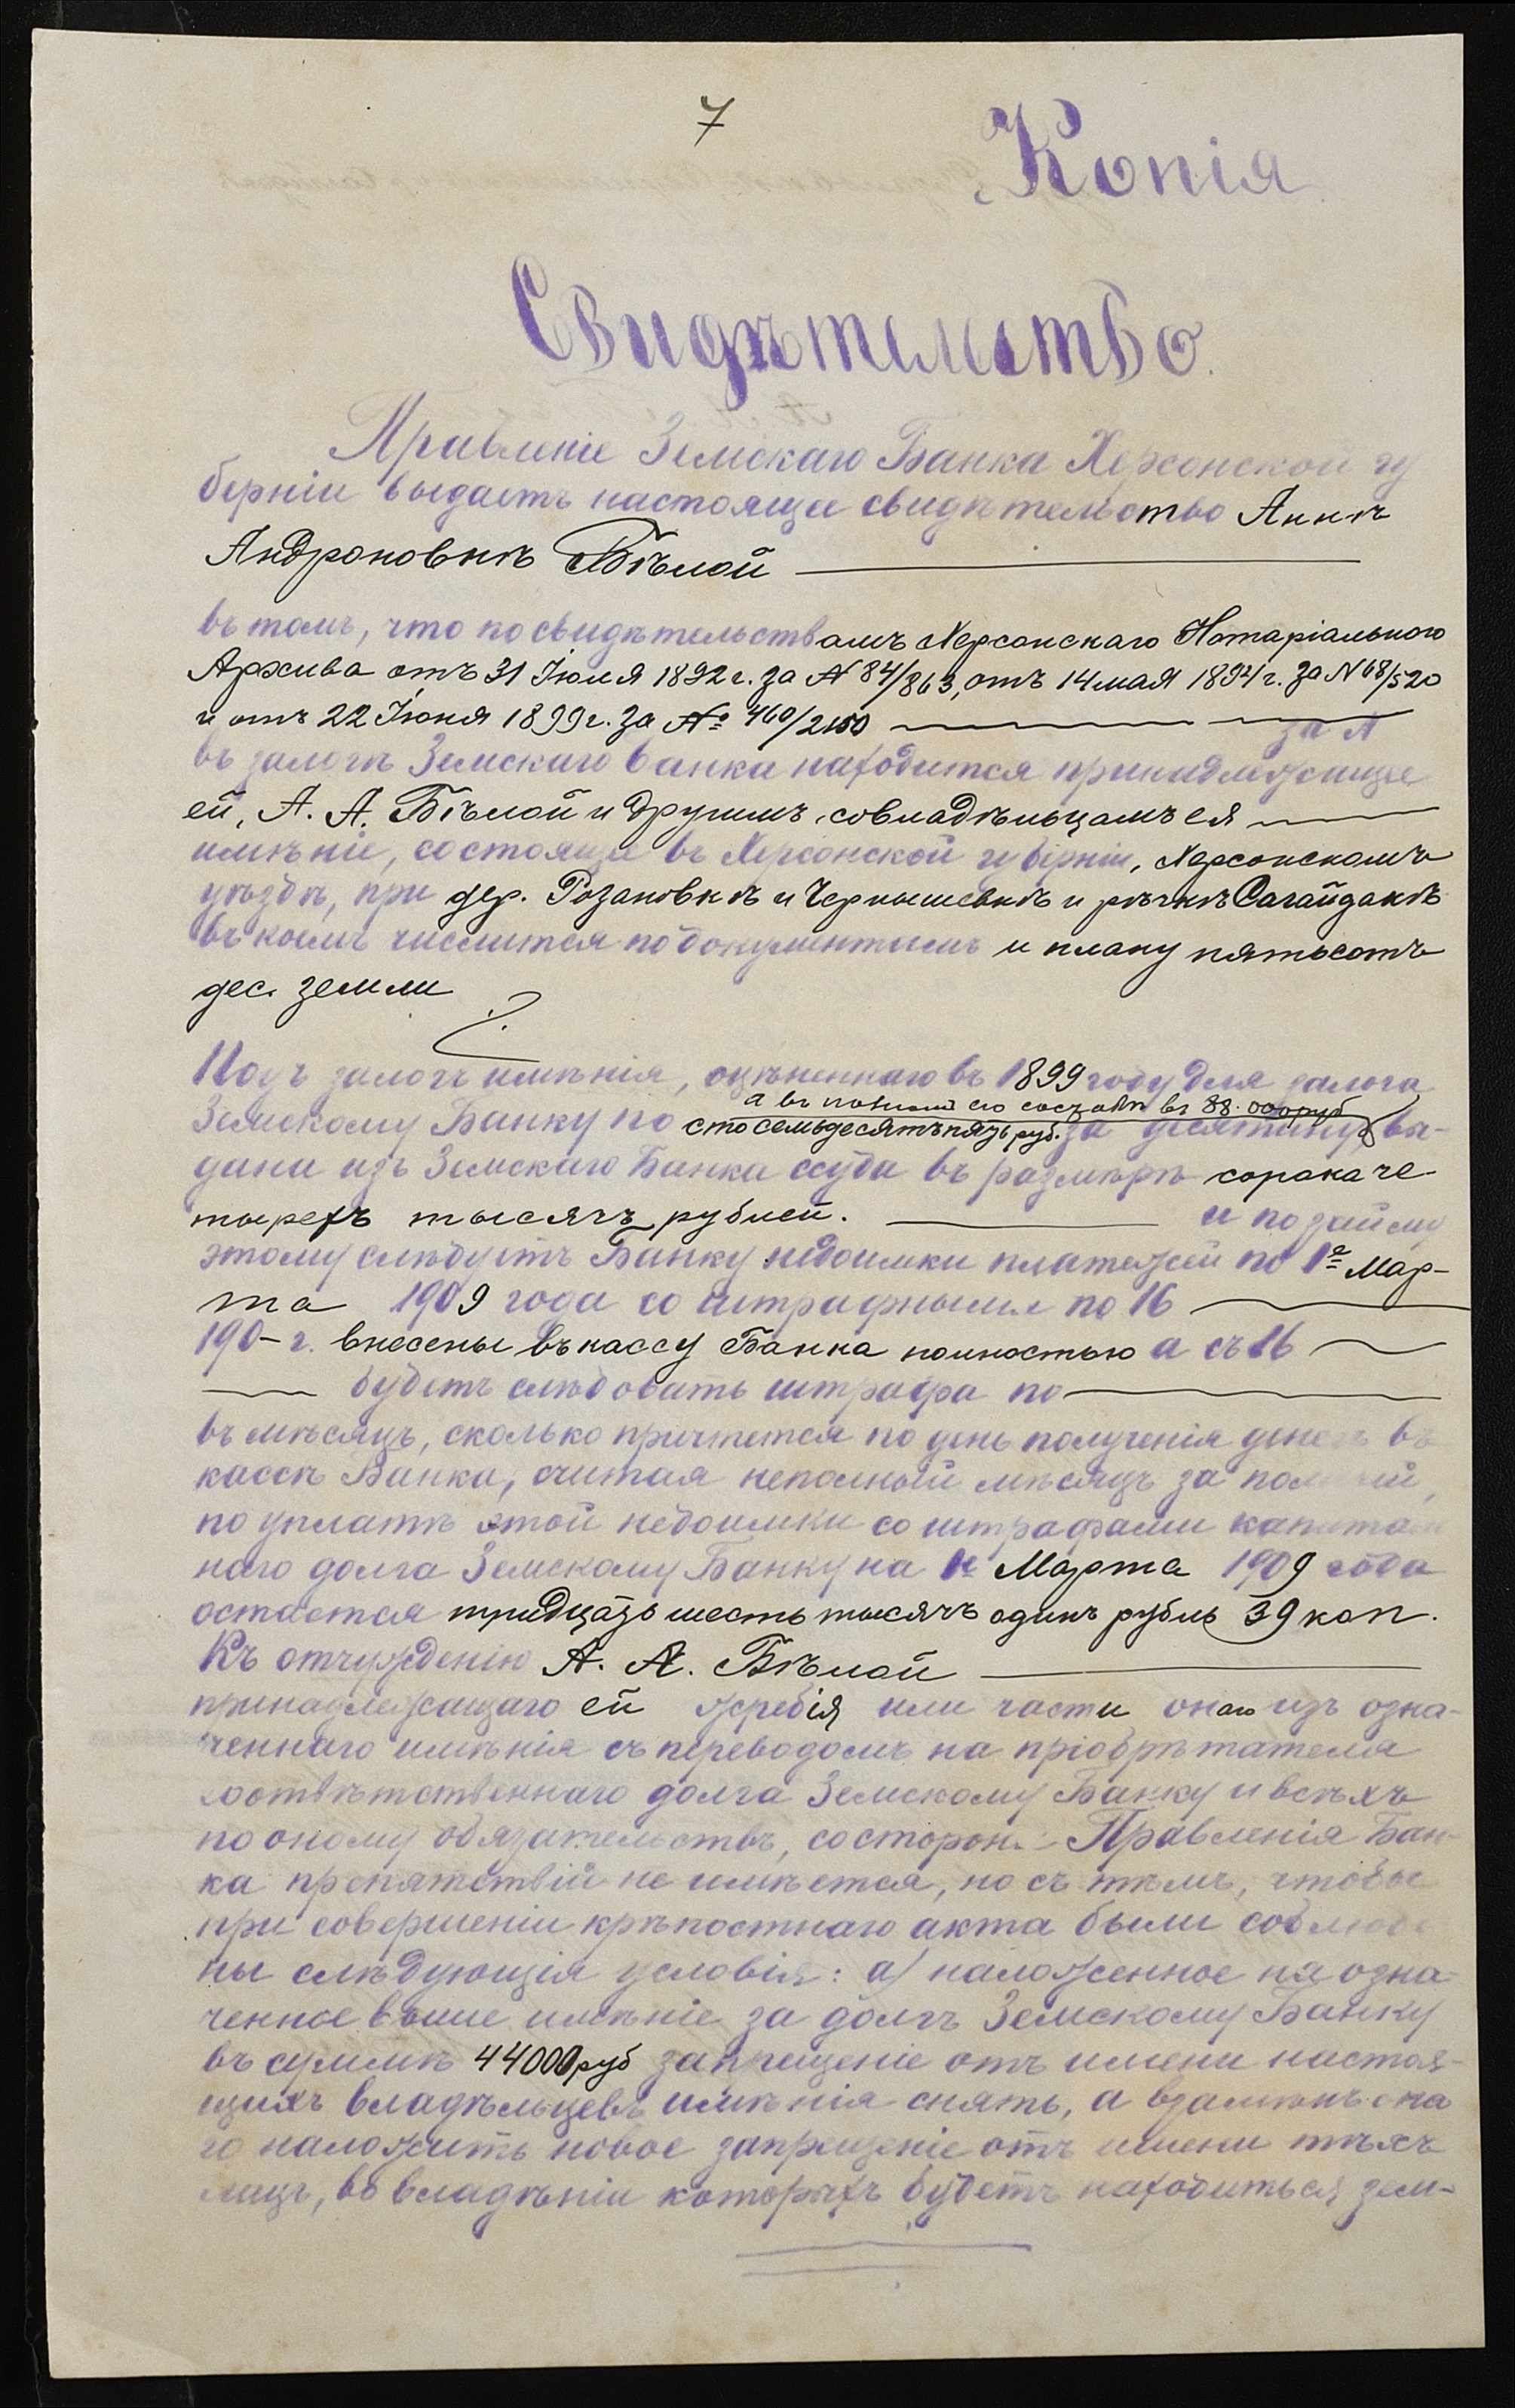 7
Копія
Свидѣтельство.
Правленіе Земскаго Банка Херсонской гу
берніи выдаетъ настоящее свидѣтельство Аннѣ
Андроновнѣ Бѣлой
въ томъ, что по свидѣтельствамъ Херсонскаго Нотаріальнаго
Архива отъ 31 Іюля 1892 г. за № 84/863, отъ 14 мая 1894 г. за № 68/520
и отъ 22 Іюня 1899 г. за № 460/2150 за №
въ залогѣ Земскаго банка находится принадлежащее
ей, А. А. Бѣлой и другимъ совладѣльцамъ ея
имѣніе, состоящее въ Херсонской губерніи, Херсонскомъ
уѣздѣ, при дер. Розановкѣ и Чернышевкѣ и рѣчкѣ Сагайдакѣ
въ коемъ числится по документамъ и плану пятьсотъ
дес. земли
Подъ залогъ имѣнія, оцѣненнаго въ 1899 году для залога
а въ полномъ его составѣ въ 88.000 руб
Земскому Банку по сто семьдесятъ пять руб. за десятину, вы-
дана изъ Земскаго Банка ссуда въ размѣрѣ сорока че
тырехъ тысячъ рублей. и по займу
этому слѣдуетъ Банку недоимки платежей по 1е Мар-
та 1909 года со штрафными по 16
190- г. внесены въ кассу Банка полностью а съ 16
будетъ слѣдовать штрафа по
въ мѣсяцъ, сколько причтется по день полученія денегъ въ
кассѣ Банка, считая неполный мѣсяцъ за полный,
по уплатѣ этой недоимки со штрафами капиталь
наго долга Земскому Банку на 1е Марта 1909 года
остается тридцать шесть тысячъ одинъ рубль 39 коп.
Къ отчужденію А. А. Бѣлой
принадлежащаго ей жребія или части онаго изъ озна-
ченнаго имѣнія съ переводомъ на пріобрѣтателя
соотвѣтственнаго долга Земскому Банку и всѣхъ
по оному обязательствъ, со стороны Правленія Бан-
ка препятствій не имѣется, но съ тѣмъ, чтобы
при совершеніи крѣпостнаго акта были соблюде
ны слѣдующія условія: а) наложенное на озна-
ченное выше имѣніе за долгъ Земскому Банку
въ суммѣ 44000 руб запрещеніе отъ имени настоя-
щихъ владѣльцевъ имѣнія снять, а взамѣнъ она
го наложить новое запрещеніе отъ имени тѣхъ
лицъ, въ владѣніи которыхъ будетъ находиться зем-